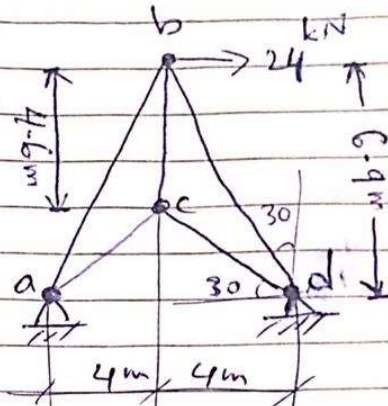 b
24 kN
4.6m
6.9m
c
30
a
30
d
4m
4m